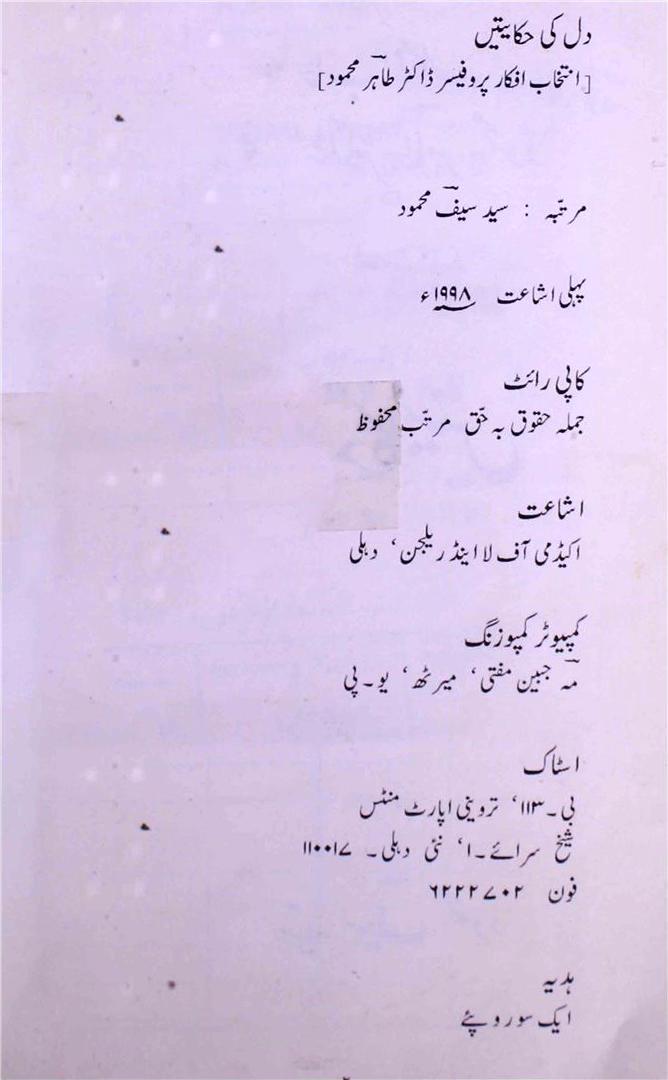 دل کی حکایتیں
[انتخاب افکار پروفیسر ڈاکٹر طاہرؔ محمود]
مرتبّہ : سید سیفؔ محمود
پہلی اشاعت ۱۹۹۸ء
کاپی رائٹ
جملہ حقوق بہ حقّ مرتّب محفوظ
اشاعت
اکیڈمی آف لا اینڈ ریلجن، دہلی
کمپیوٹر کمپوزنگ
مہ جبین مفتی، میرٹھ، یو۔پی
اسٹاک
بی۔۱۱۳، تروینی اپارٹ منٹس
شیخ سرائے۔۱، نئی دہلی۔ ۱۱۰۰۱۷
فون ۶۲۲۲۷۰۲
ہدیہ
ایک سو روپئے
۲